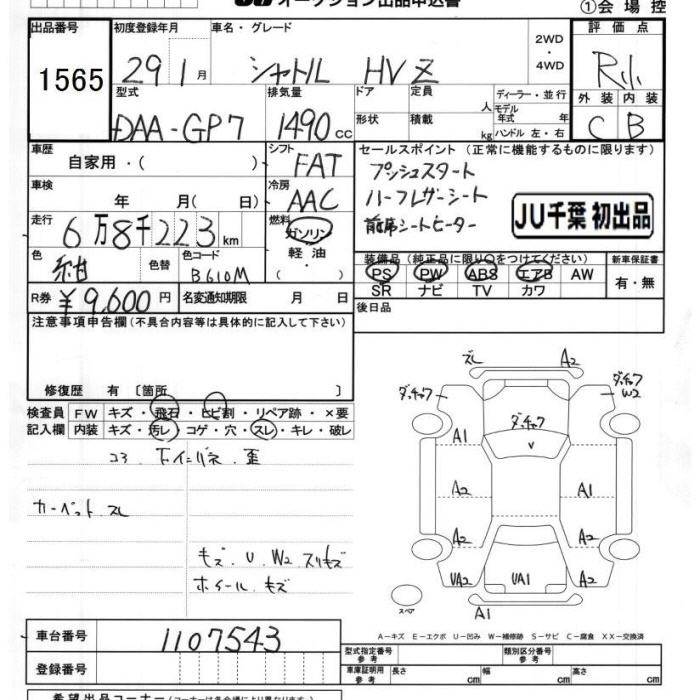 オークション出品申込書
①会場控
出品番号 初度登録年月 車名・グレード 評価点
1565 29 1月 シャトル HV Z 2WD・4WD R小
型式 排気量 ドア 定員 人 ディーラー・並行 外装 内装
DAA-GP7 1490cc 形状 積載 kg モデル年式 年 ハンドル 左・右 C B
車歴 シフト セールスポイント (正常に機能するものに限ります)
自家用・( ) FAT プッシュスタート
車検 冷房 ハーフレザーシート
年 月( 日) AAC 前席シートヒーター
走行 燃料 JU千葉 初出品
6万8千223km ガソリン・軽油
色 色替 色コード 装備品 (純正品に限り○をつけてください) 新車保証書
紺 B610M PS PW ABS エアB AW 有・無
SR ナビ TV カワ
R券 ¥9,600円 名変通知期限 月 日 後日品
注意事項申告欄(不具合内容等は具体的に記入して下さい)
修復歴 有 〔箇所 〕
検査員 FW キズ・飛石・ヒビ割・リペア跡・×要
記入欄 内装 キズ・汚レ・コゲ・穴・スレ・キレ・破レ
コア.下インパネ.歪
カーペット.スレ
キズ.U.W2 スリキズ
ホイール.キズ
スレ A2
ダッチャク ダッチャク W2
ダッチャク
A1 V
A2 A1
A2 A2
UA2 UA1 A2
スペア A1
A-キズ E-エクボ U-凹み W-補修跡 S-サビ C-腐食 XX-交換済
車台番号 1107543
型式指定番号 参考 類別区分番号 参考
登録番号 車庫証明用 参考 長さ cm 幅 cm 高さ cm
希望出品コーナー (コーナーは各会場により異なります)